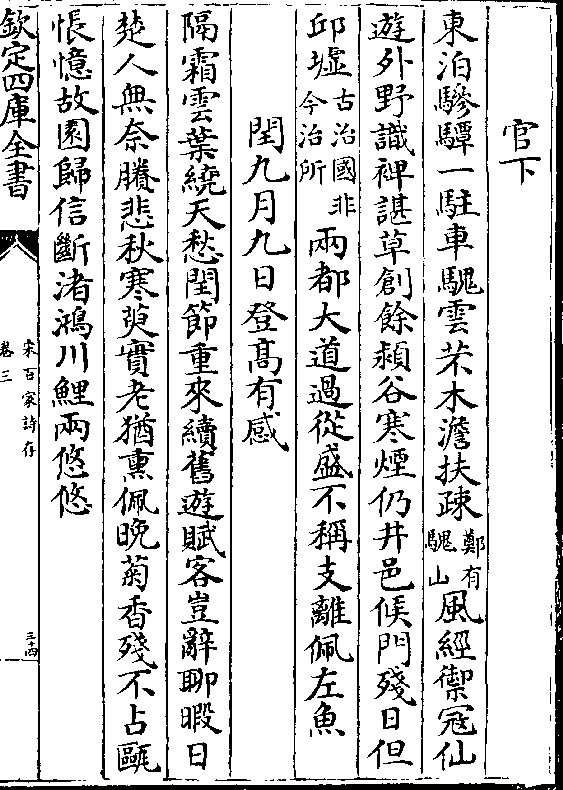 官下
東泊驂驔一駐車騩雲芣木澹扶疎鄭有騩山風經禦寇仙
遊外野識裨諶草創餘潁谷寒煙仍井邑候門殘日但
邱墟古治國非今治所兩都大道過從盛不稱支離佩左魚
閏九月九日登髙有感
隔霜雲葉繞天愁閏節重來續舊遊賦客豈辭聊暇日
楚人無奈賸悲秋寒萸實老猶熏佩晚菊香殘不占甌
悵憶故園歸信斷渚鴻川鯉兩悠悠
欽定四庫全書
宋百家詩存
卷三
三十四